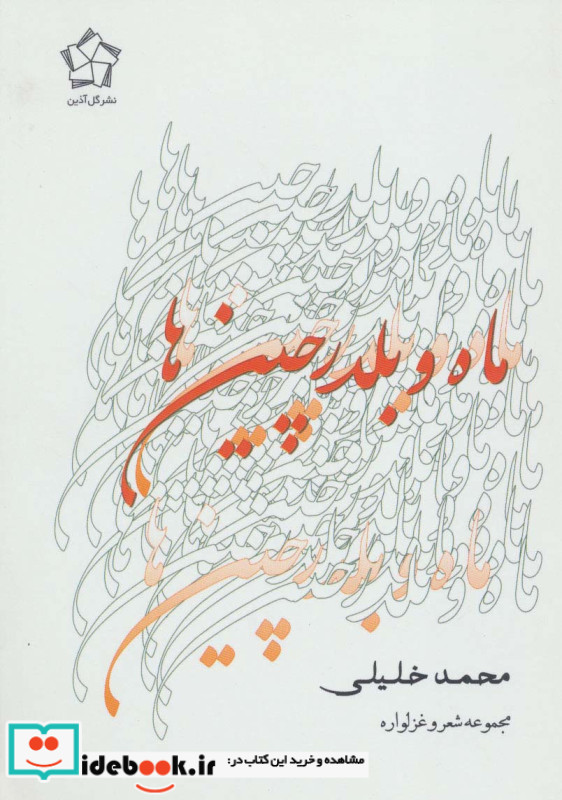 نشر گل آذین
ماه و بلدرچین‌ها
ماه و بلدرچین‌ها
محمد خلیلی
مجموعه شعر و غزلواره
مشاهده و خرید این کتاب در:
idebook.ir